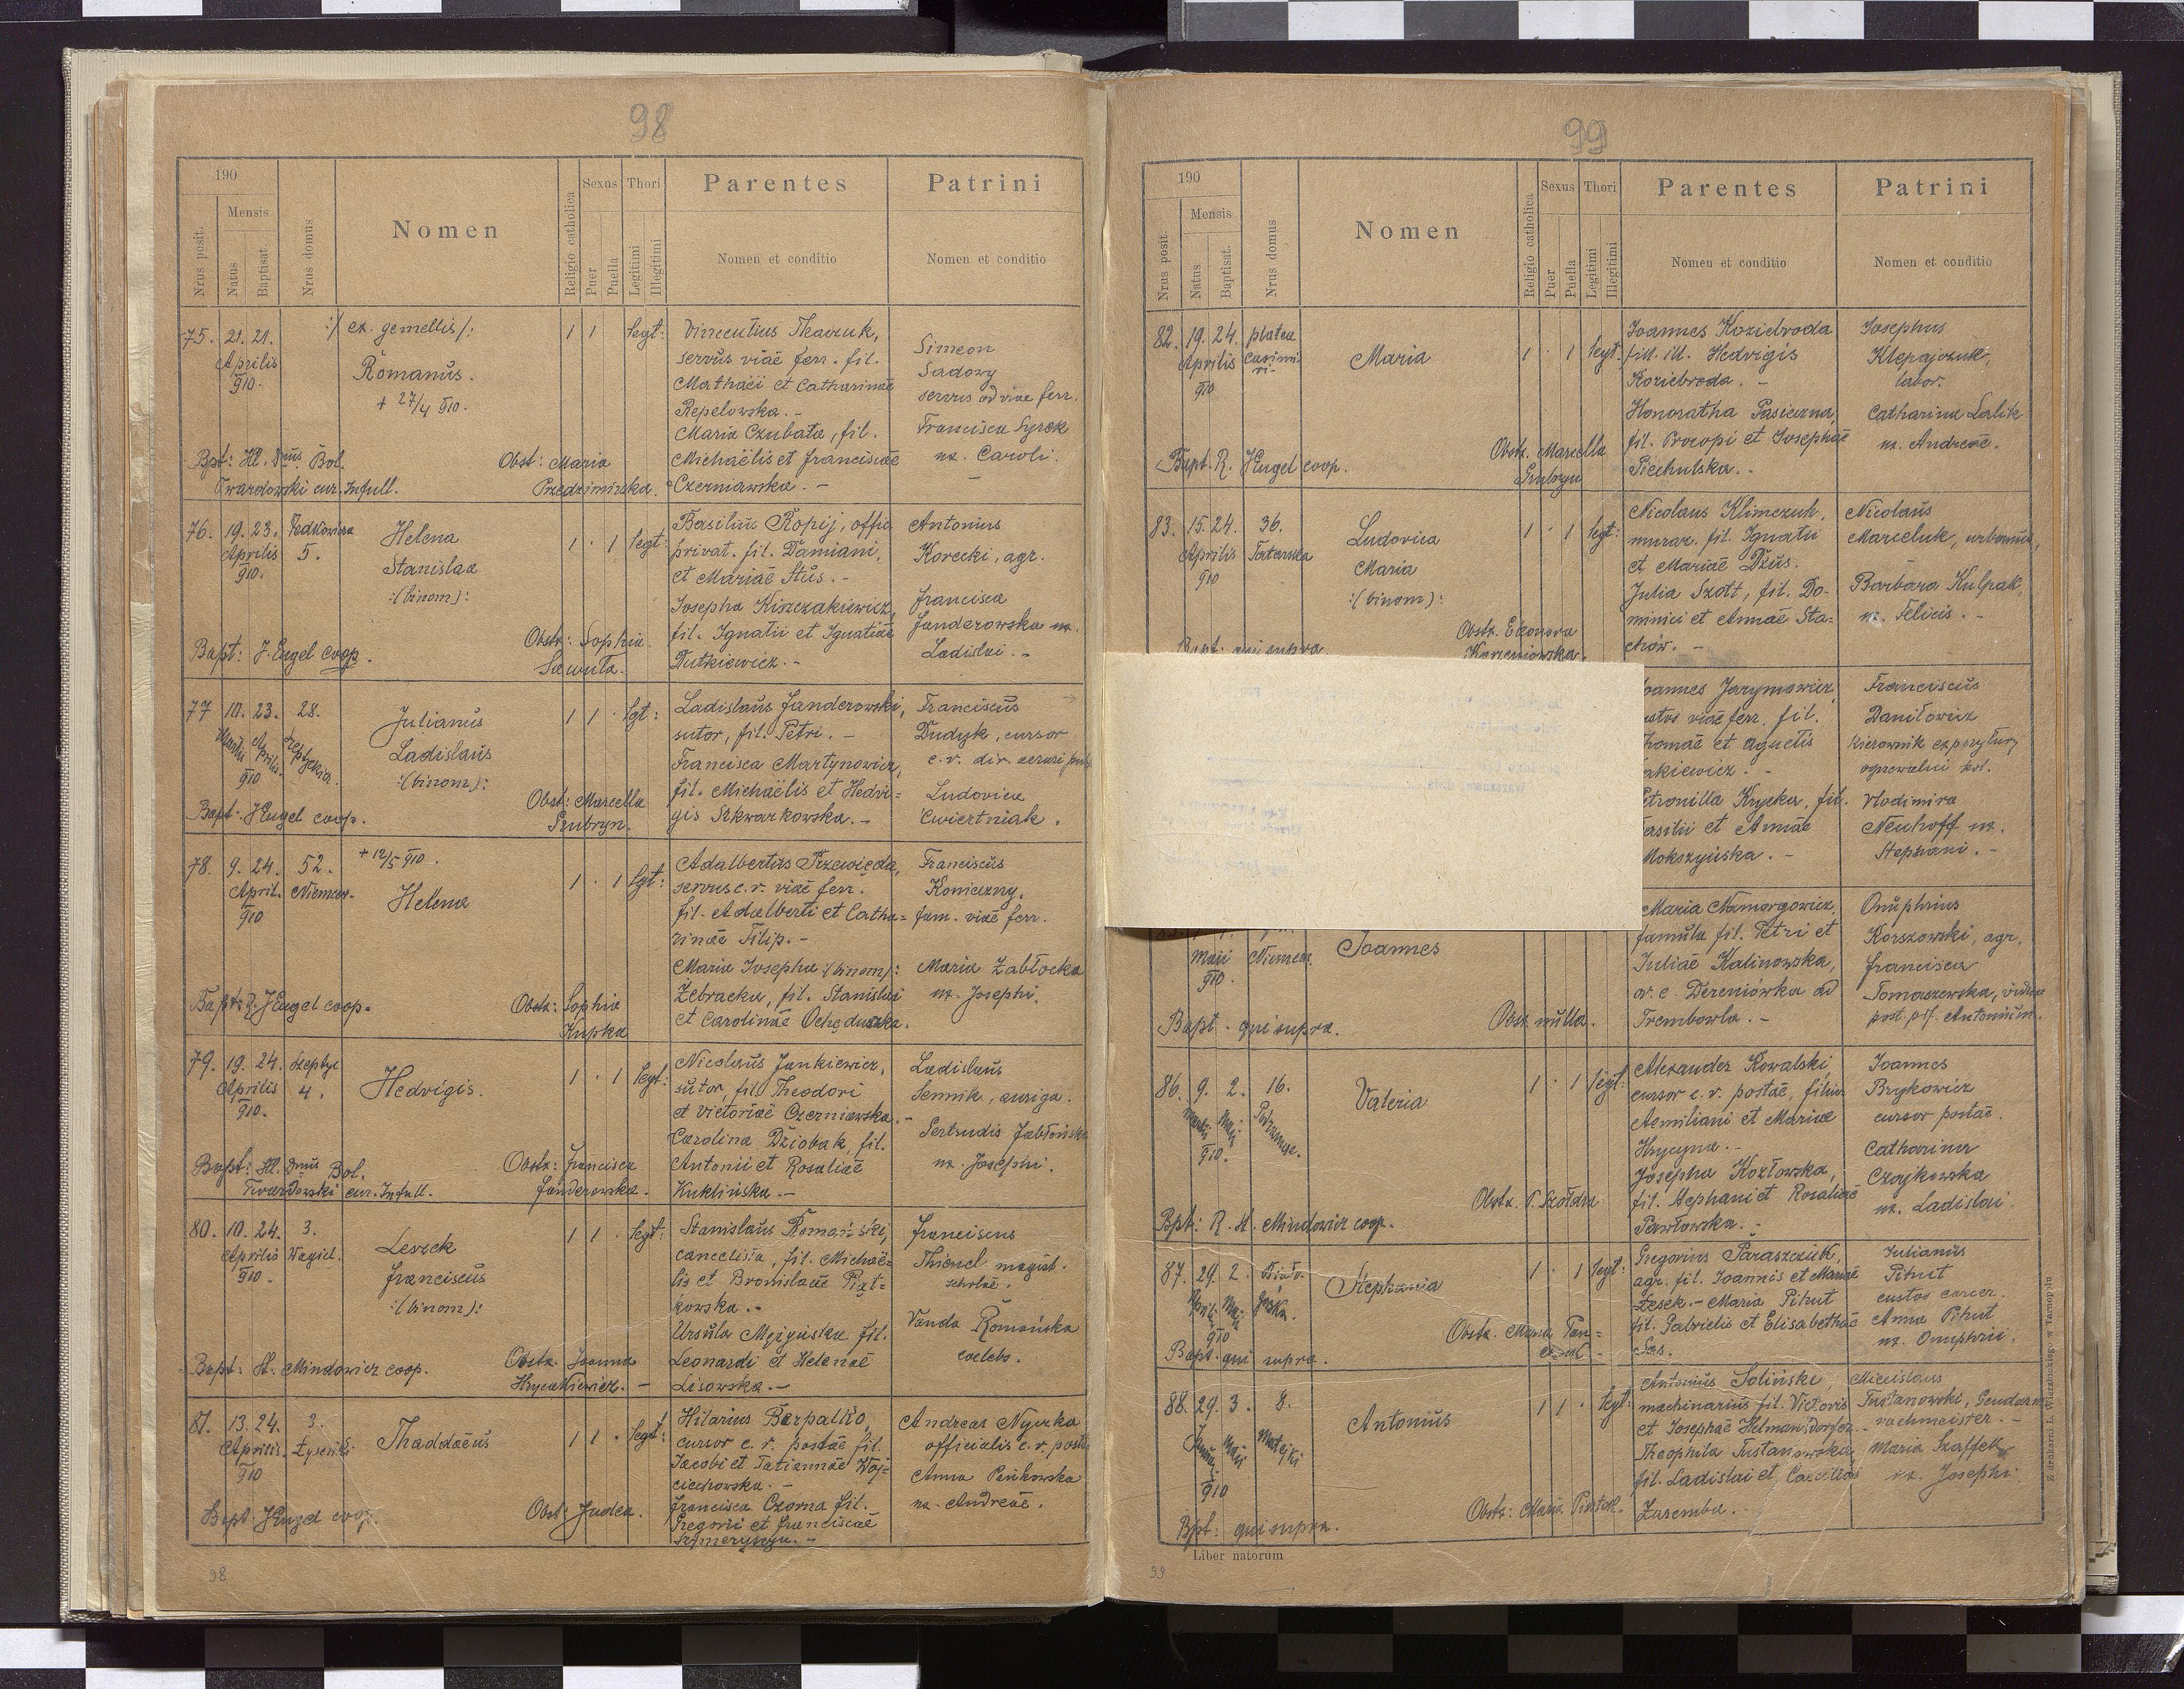 98
190
Mensis
Nrus posit.
Natus
Baptisat.
Nrus domus
Nomen
Religio catholica
Sexus
Puer
Puella
Thori
Legitimi
Illegitimi
Parentes
Nomen et conditio
Patrini
Nomen et conditio
75. 21. 21.
Aprilis
910.
:/ ex gemellis /:
Romanus.
+ 27/4 910.
1 1 legt:
Vincentius Tkaczuk,
servus viae ferr. fil.
Mathaei et Catharinae
Repelowska. -
Maria Czubata, fil.
Michaëlis et Franciscae
Czerniawska. -
Simeon
Sadowy
servus ad viae ferr.
Francisca Syrek
ux. Caroli.
Bpt: Ill. Dnus Bol.
Twardowski cur. Infull.
Obst: Maria
Przedzimirska.
76. 19. 23.
Aprilis 5.
910.
Helena
Stanislaa
:(binom):
1 . 1 legt:
Basilius Kopij, offic.
privat. fil. Damiani,
et Mariae Stus. -
Josepha Kiszczakiewicz,
fil. Ignatii et Ignatiae
Dutkiewicz. -
Antonius
Korecki, agr.
Francisca
Janderowska ux.
Ladislai. -
Bapt: J. Engel coop.
Obstr: Sophia
Sawuta.
77 10. 23. 28.
Martii Aprilis Szeptyckia.
910
Julianus
Ladislaus
:(binom):
1 1 . lgt:
Ladislaus Janderowski,
sutor, fil. Petri. -
Francisca Martynowicz,
fil. Michaëlis et Hedvi-
gis Skwarkowska. -
Franciscus
Dudyk, cursor
c. r. dir.
Ludovica
Cwiertniak.
Bapt. J Engel coop.
Obst: Marcella
Prubryn.
78. 9. 24. 52.
April. Niemcow.
910
+ 12/5 910.
Helena
1 . 1 lgt:
Adalbertus Przewięda,
servus c. r. viae ferr.
fil. Adalberti et Catha=
rinae Filip. -
Maria Josepha :(binom):
Zebracka, fil. Stanislai
et Carolinae Ochęduszka.
Franciscus
Konieczny.
fam. viae ferr.
Maria Zabłocka
ux. Josephi.
Bapt: R. J Engel coop.
Obstr: Sophia
Kupka
79. 19. 24. Szeptyc
Aprilis 4.
910.
Hedvigis.
1 . 1 legt:
Nicolaus Jankiewicz,
sutor, fil. Theodori
et Victoriae Czerniawska. -
Carolina Dziobak, fil.
Antonii et Rosaliae
Kuklińska. -
Ladislaus
Sennik, auriga.
Gertrudis Jabłońska
ux. Josephi.
Bapt: Ill. Dnus Bol.
Twardowski cur. Infull.
Obstr: Francisca
Janderowska.
80. 10. 24. 3.
Aprilis Wagiel.
910.
Leszek
Franciscus
:(binom):
1 1 . legt:
Stanislaus Romański,
cancelista, fil. Michaë-
lis et Bronislaae Piąt-
kowska. -
Ursula Mężyńska fil.
Leonardi et Helenae
Lisowska. -
Franciscus
Thienel magist.
scholae.
Vanda Romańska
coelebs.
Bapt: H. Mindowicz coop.
Obstr. Joanna
Hrycakiewicz. -
81. 13. 24. 3.
Aprilis.
910
Thaddaeus
1 1 . legt:
Hilarius Barpalko,
cursor c. r. postae fil.
Jacobi et Tatiannae Woj-
ciechowska. -
Francisca Czorna fil.
Gregorii et Franciscae
Andreas Nyczka
officialis c. r. posta
Anna Pańkowska
ux. Andreae.
Bapt. J Engel coop.
Obst: Judea.
98
99
190
Mensis
Nrus posit.
Natus
Baptisat.
Nrus domus
Nomen
Religio catholica
Sexus
Puer
Puella
Thori
Legitimi
Illegitimi
Parentes
Nomen et conditio
Patrini
Nomen et conditio
82. 19. 24. platea
Aprilis Casimi-
910 ri-
Maria
1 . 1 legt.
Joannes Koziebroda
fil. ill. Hedvigis
Koziebroda. -
Honoratha Pasieczna,
fil. Procopi et Josephae
Piechulska. -
Josephus
Klepajczuk,
labor.
Catharina Lalik
ux. Andreae.
Bapt. R. J Engel coop.
Obstr. Marcella
Prubryn
83. 15. 24. 36.
Aprilis Tatarska
910
Ludovica
Maria
:(binom):
1 . 1 legt:
Nicolaus Klimczuk,
murar. fil. Ignatii
et Mariae Dżus.
Julia Szott, fil. Do-
minici et Annae Sta-
chów. -
Nicolaus
Marceluk, urbanus,
Barbara Kulpak,
ux. Felicis. -
Bapt: qui supra
Obstr. Eleonora
Korzeniowska.
oannes Jarymowicz,
ustos viae ferr. fil.
homae et Agnetis
akiewicz. -
etronilla Krycka, fil.
asilii et Annae
Mokszyńska. -
Franciscus
Daniłowicz
kierownik
ogrzewalni kol.
Vlodimira
Neuhoff ux.
Stephani. -
Maii Niemca.
910.
Joannes
Maria Namorgowicz,
famula fil. Petri et
Juliae Kalinowska,
or. e. Dereniówka ad
Trembowla. -
Onuphrius
Korszowski, agr.
Francisca
Tomaszewska, vidua
post. pf. Antonium.
Bapt. qui supra.
Obstr. nulla.
86. 9. 2. 16.
Martii Maji
910.
Valeria
1 . 1 legt:
Alexander Kowalski,
cursor c. r. postae, filius
Aemiliani et Mariae
Hrycyna. -
Josepha Kozłowska,
fil. Stephani et Rosaliae
Pawłowska. -
Joannes
Brykowicz
cursor postae.
Catharina
Czajkowska
ux. Ladislai.
Bpt: R. H. Mindowicz coop.
Obstr.
87. 29. 2.
Aprilis Maji
910
Stephania
1 . 1 legt:
Gregorius Paraszczuk,
agr. fil. Joannis et Mariae
Lesek. - Maria Pihut
fil. Gabrielis et Elisabethae
Sas.
Julianus
Pihut
custos carcer.
Anna Pihut
ux. Onuphrii.
Bapt. qui supra.
Obstr. Maria
88. 29. 3. 8.
Maji Matejki
910
Antonius
1 1 . legt:
Antonius Soliński,
machinarius fil. Victoris
et Josephae Helmansdorfer. -
Theophila Tustanowska,
fil. Ladislai et Caeciliae
Zaremba. -
Miecislaus
Tustanowski, Gendarm
vachmeister. -
Maria Szaffek
ux. Josephi.
Bpt: qui supra.
Obstr: Maria Piątek.
Liber natorum
Z drukarni L. Wierzbickiego w Tarnoplu
99